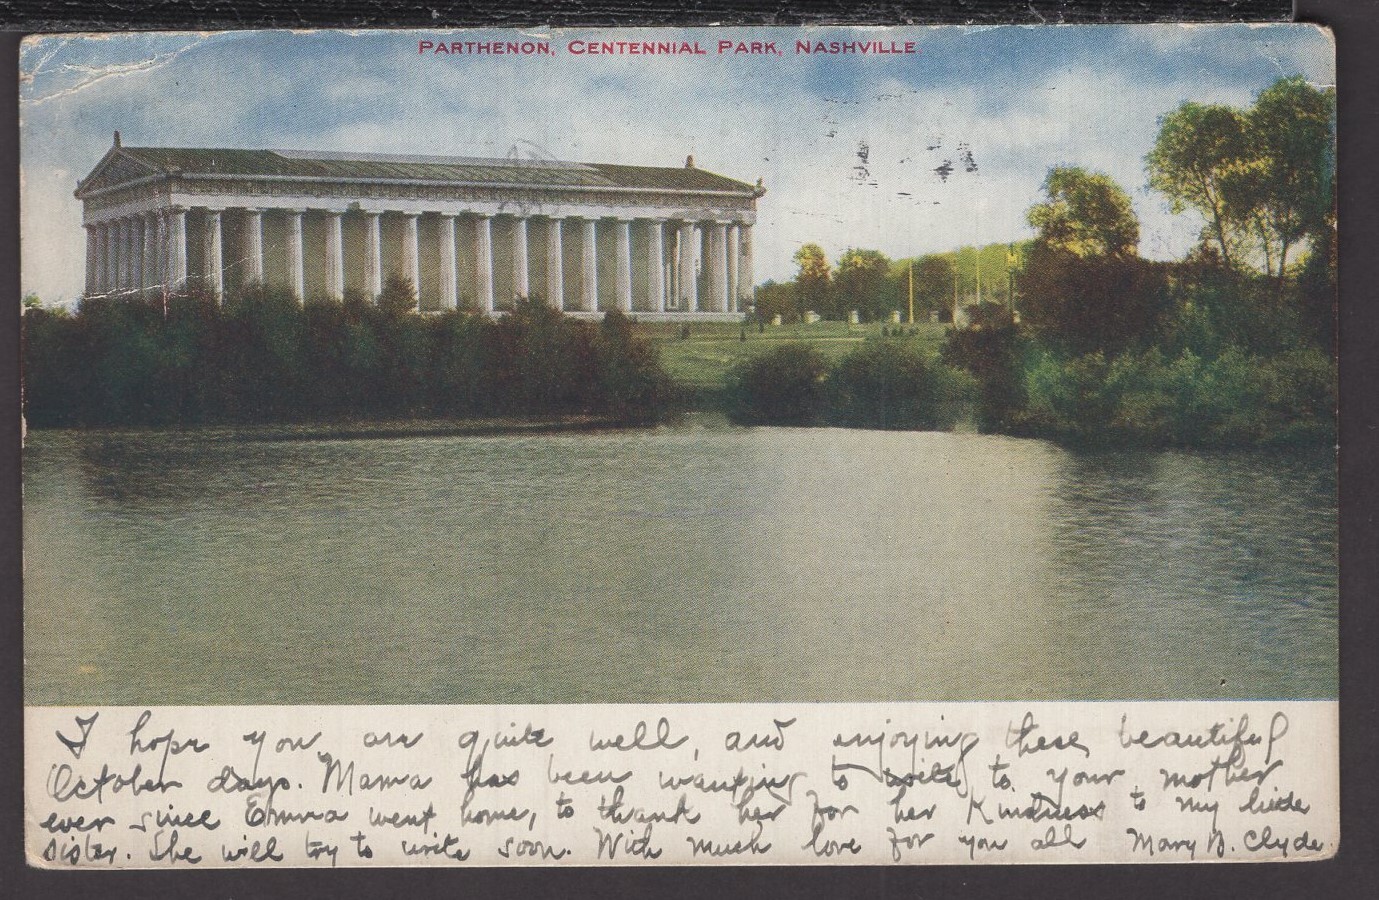 PARTHENON, CENTENNIAL PARK, NASHVILLE
I hope you are quite well, and enjoying these beautiful
October days. Mama has been wanting to write to your mother
ever since Emma went home, to thank her for her Kindness to my little
sister. She will try to write soon. With much love for you all Mary B. Clyde.